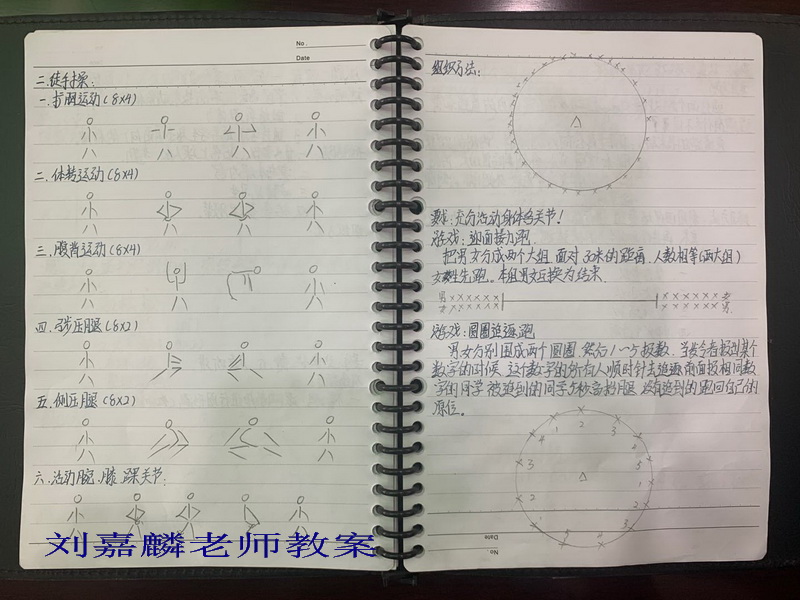 No.
Date
二.徒手操:
一.扩胸运动(8×4)
二.体转运动(8×4)
三.腹背运动(8×4)
四.弓步压腿(8×2)
五.侧压腿(8×2)
六.活动腕、膝、踝关节:
刘嘉麟老师教案
组织方法:
要求:充分活动身体各关节!
游戏:迎面接力跑.
把男女分成两个大组 面对30米的距离 人数相等(两大组)
先跑。本组男女互换为结束.
男 ×××××× ×××××× 女
女 ×××××× ×××××× 男
游戏:圆圈追逐跑
男女分别围成两个圆圈 然后1一5报数.
数字的时候 这个数字的所有人顺时针去追逐前面报相同数
字的同学 被追到的同学 没有追到的跑回自己的
原位。
Date
No